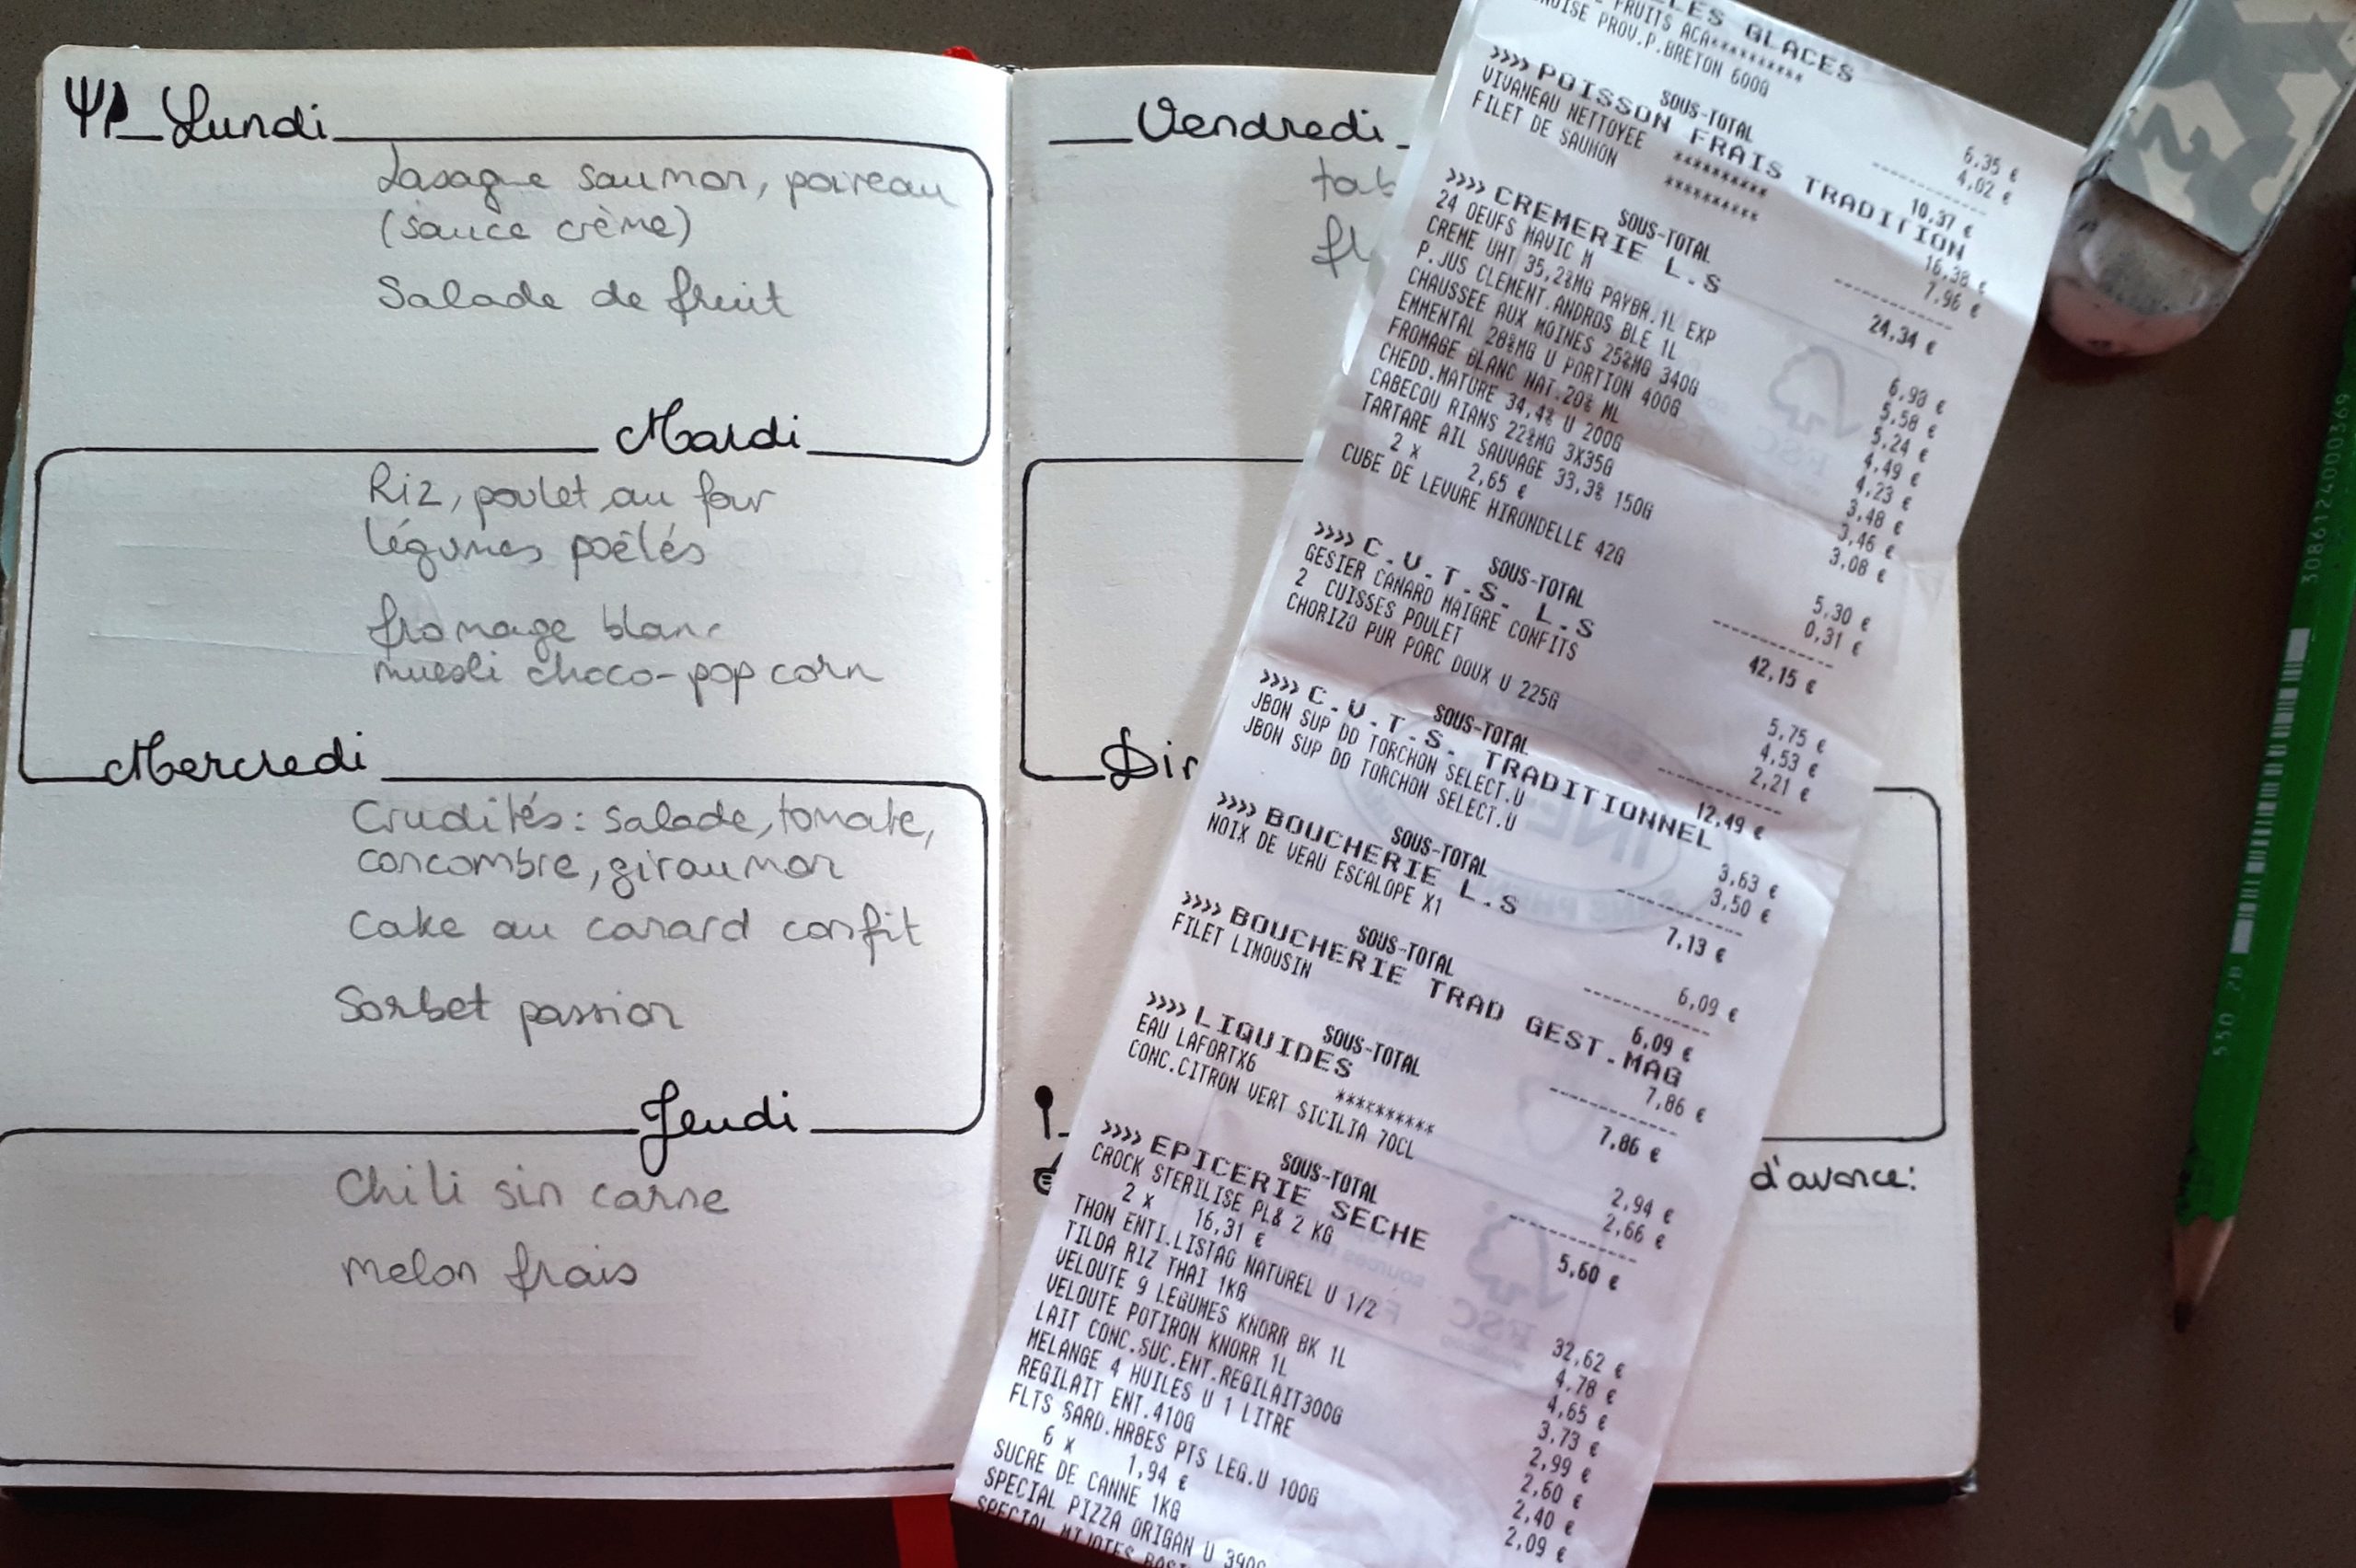 Lundi
Lasagne saumon, poireau
(sauce crème)
Salade de fruit
Mardi
Riz, poulet au four
légumes poêlés
fromage blanc
muesli choco-pop corn
Mercredi
Crudités: salade, tomate,
concombre, giraumon
Cake au canard confit
Sorbet passion
Jeudi
Chili sin carne
Melon frais
Vendredi
tab
fr
Dir
d'avance:
GLACES
FRUITS ACA********** 6,35 €
PROV.P.BRETON 600G 4,02 €
SOUS-TOTAL 10,37 €
>>>> POISSON FRAIS TRADITION
VIVANEAU NETTOYEE ********** 16,38 €
FILET DE SAUMON ********** 7,96 €
SOUS-TOTAL 24,34 €
>>>> CREMERIE L.S
24 OEUFS MAVIC M 6,98 €
CREME UHT 35,2%MG PAYBR.1L EXP 5,58 €
P.JUS CLEMENT.ANDROS BLE 1L 5,24 €
CHAUSSEE AUX MOINES 25%MG 340G 4,49 €
EMMENTAL 28%MG U PORTION 400G 4,23 €
FROMAGE BLANC NAT.20% ML 3,48 €
CHEDD.MATURE 34,4% U 200G 3,46 €
CABECOU RIANS 22%MG 3X35G 3,08 €
TARTARE AIL SAUVAGE 33,3% 150G
2 x 2,65 € 5,30 €
CUBE DE LEVURE HIRONDELLE 42G 0,31 €
SOUS-TOTAL 42,15 €
>>>> C.U.T.S. L.S
GESIER CANARD MAIGRE CONFITS 5,75 €
2 CUISSES POULET 4,53 €
CHORIZO PUR PORC DOUX U 225G 2,21 €
SOUS-TOTAL 12,49 €
>>>> C.U.T.S. TRADITIONNEL
JBON SUP DD TORCHON SELECT.U 3,63 €
JBON SUP DD TORCHON SELECT.U 3,50 €
SOUS-TOTAL 7,13 €
>>>> BOUCHERIE L.S
NOIX DE VEAU ESCALOPE X1 6,09 €
SOUS-TOTAL 6,09 €
>>>> BOUCHERIE TRAD GEST.MAG
FILET LIMOUSIN 7,86 €
SOUS-TOTAL 7,86 €
>>>> LIQUIDES
EAU LAFORTX6 ********** 2,94 €
CONC.CITRON VERT SICILIA 70CL 2,66 €
SOUS-TOTAL 5,60 €
>>>> EPICERIE SECHE
CROCK STERILISE PL& 2 KG
2 x 16,31 € 32,62 €
THON ENTI.LISTAO NATUREL U 1/2 4,78 €
TILDA RIZ THAI 1KG 4,65 €
VELOUTE 9 LEGUMES KNORR BK 1L 3,73 €
VELOUTE POTIRON KNORR 1L 2,99 €
LAIT CONC.SUC.ENT.REGILAIT300G 2,60 €
MELANGE 4 HUILES U 1 LITRE 2,40 €
REGILAIT ENT.410G 2,09 €
FLTS SARD.HRBES PTS LEG.U 100G
6 x 1,94 €
SUCRE DE CANNE 1KG
SPECIAL PIZZA ORIGAN U 390G
SPECIAL MIJOTES
550 2B 3086124000369